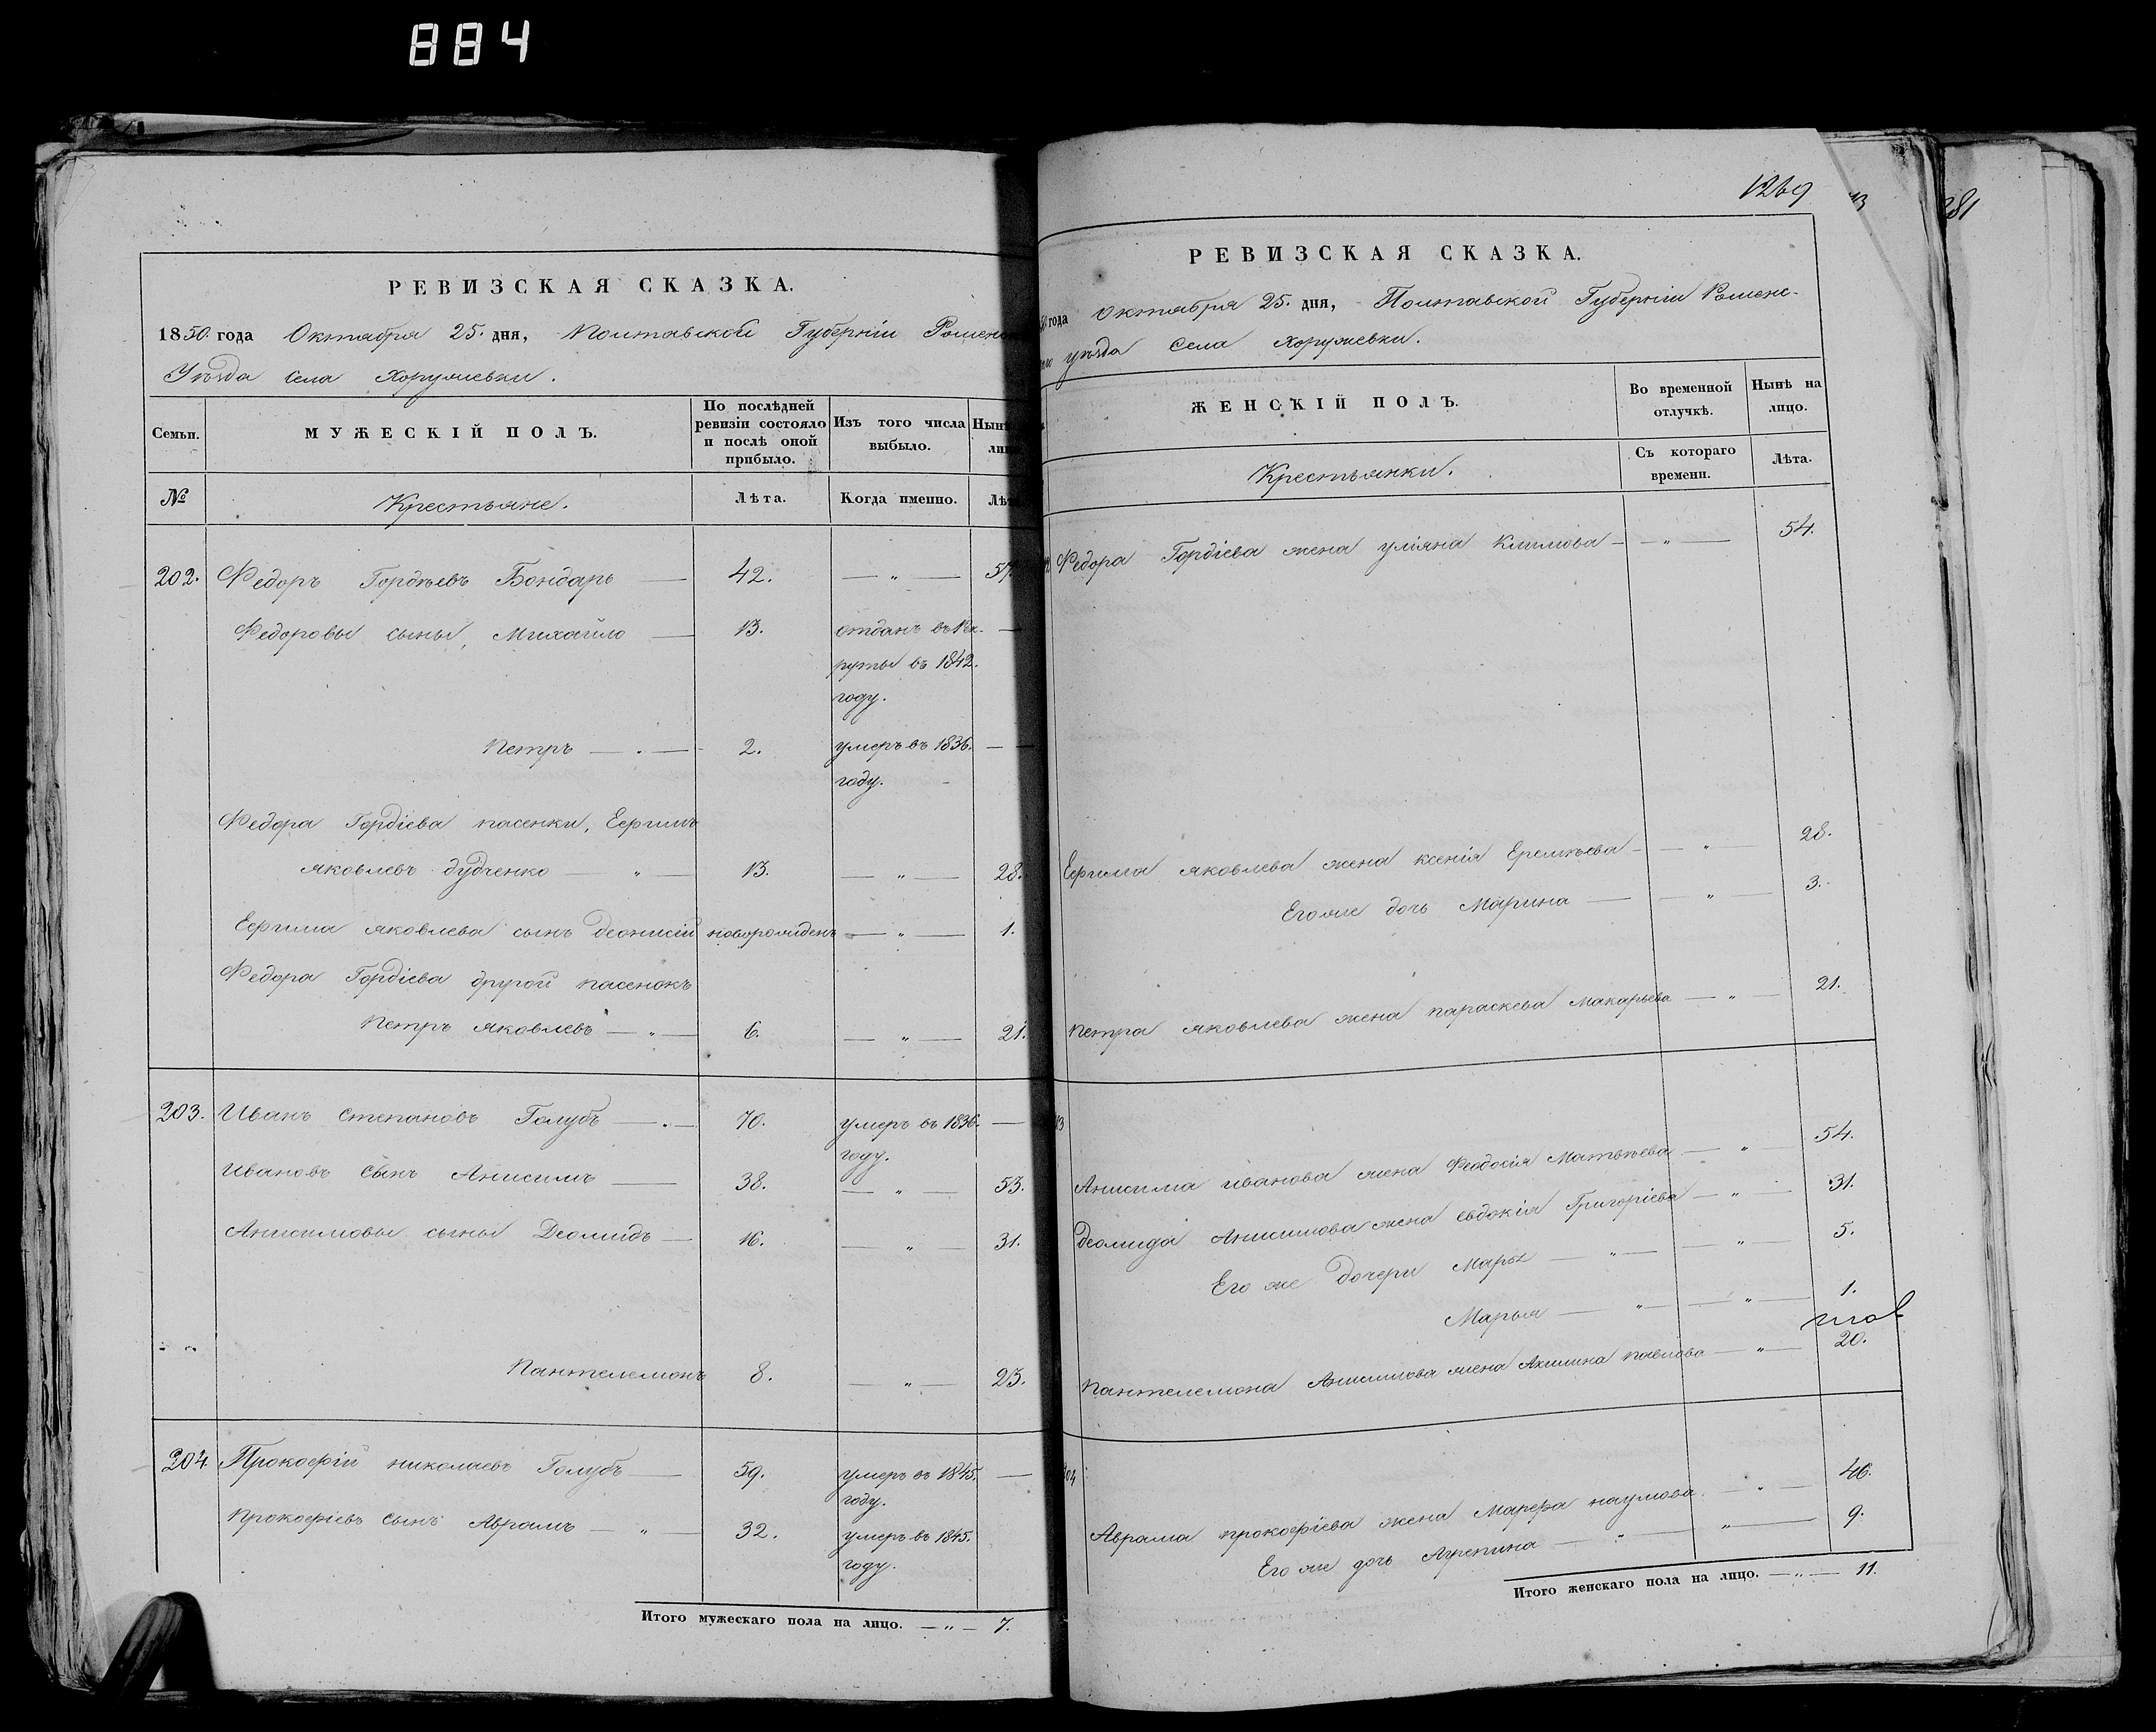 884
РЕВИЗСКАЯ СКАЗКА.
1850. года Октября 25. дня, Полтавской Губерніи Роменс
Уѣзда села Хоружевки.
Семьи.
МУЖЕСКІЙ ПОЛЪ.
По послѣдней
ревизіи состояло
и послѣ оной
прибыло.
Изъ того числа
выбыло.
Нынѣ
ли
№
Крестьяне.
Лѣта.
Когда именно.
Лѣ
202. Федоръ Гордѣевъ Бондарь — 42. — „ — 57.
Федоровы сыны, Михайло — 13. отданъ въ Рек-
руты въ 1842.
году.
Петръ — „ — 2. умеръ въ 1836.
году.
Федора Гордіева пасенки, Ефимъ
Яковлевъ Дудченко — „ — 13. — „ — 28.
Ефима Яковлева сынъ Деонисій новорожденъ — „ — 1.
Федора Гордіева другой пасенокъ
Петръ Яковлевъ — „ — 6. — „ — 21.
203. Иванъ Степановъ Голубъ — „ — 70. умеръ въ 1836. —
году.
Ивановъ сынъ Анисимъ — 38. — „ — 53.
Анисимовы сыны Деомидъ — 16. — „ — 31.
Пантелемонъ 8. — „ — 23.
204. Прокофій Николаевъ Голубъ — 59. умеръ въ 1845. —
году.
Прокофіевъ сынъ Аврамъ — „ — 32. умеръ въ 1845.
году.
Итого мужескаго пола на лицо. — „ — 7.
1269
281
РЕВИЗСКАЯ СКАЗКА.
50 года Октября 25. дня, Полтавской Губерніи Роменс-
уѣзда села Хоружевки.
ЖЕНСКІЙ ПОЛЪ.
Во временной
отлучкѣ.
Нынѣ на
лицо.
Крестьянки.
Съ котораго
времени.
Лѣта.
Федора Гордіева жена Уліяна Климова — — „ — 54.
Ефима Яковлева жена Ксенія Еремѣева — — „ — 28.
Егоже дочь Марина — — „ — 3.
Петра Яковлева жена Параскева Макарьева — „ — 21.
Анисима Иванова жена Феодосія Матвѣева — „ — 54.
Деомида Анисимова жена Евдокія Григоріева — „ — 31.
Его же дочери — „ — — „ — 5.
Марья — „ — — „ — 1.
Пантелемона Анисимова жена Акилина Павлова — „ — 20.
Аврама Прокофіева жена Марефа Наумова — „ — 46.
Его же дочь Агрепина — „ — — „ — 9.
Итого женскаго пола на лицо. — „ — 11.